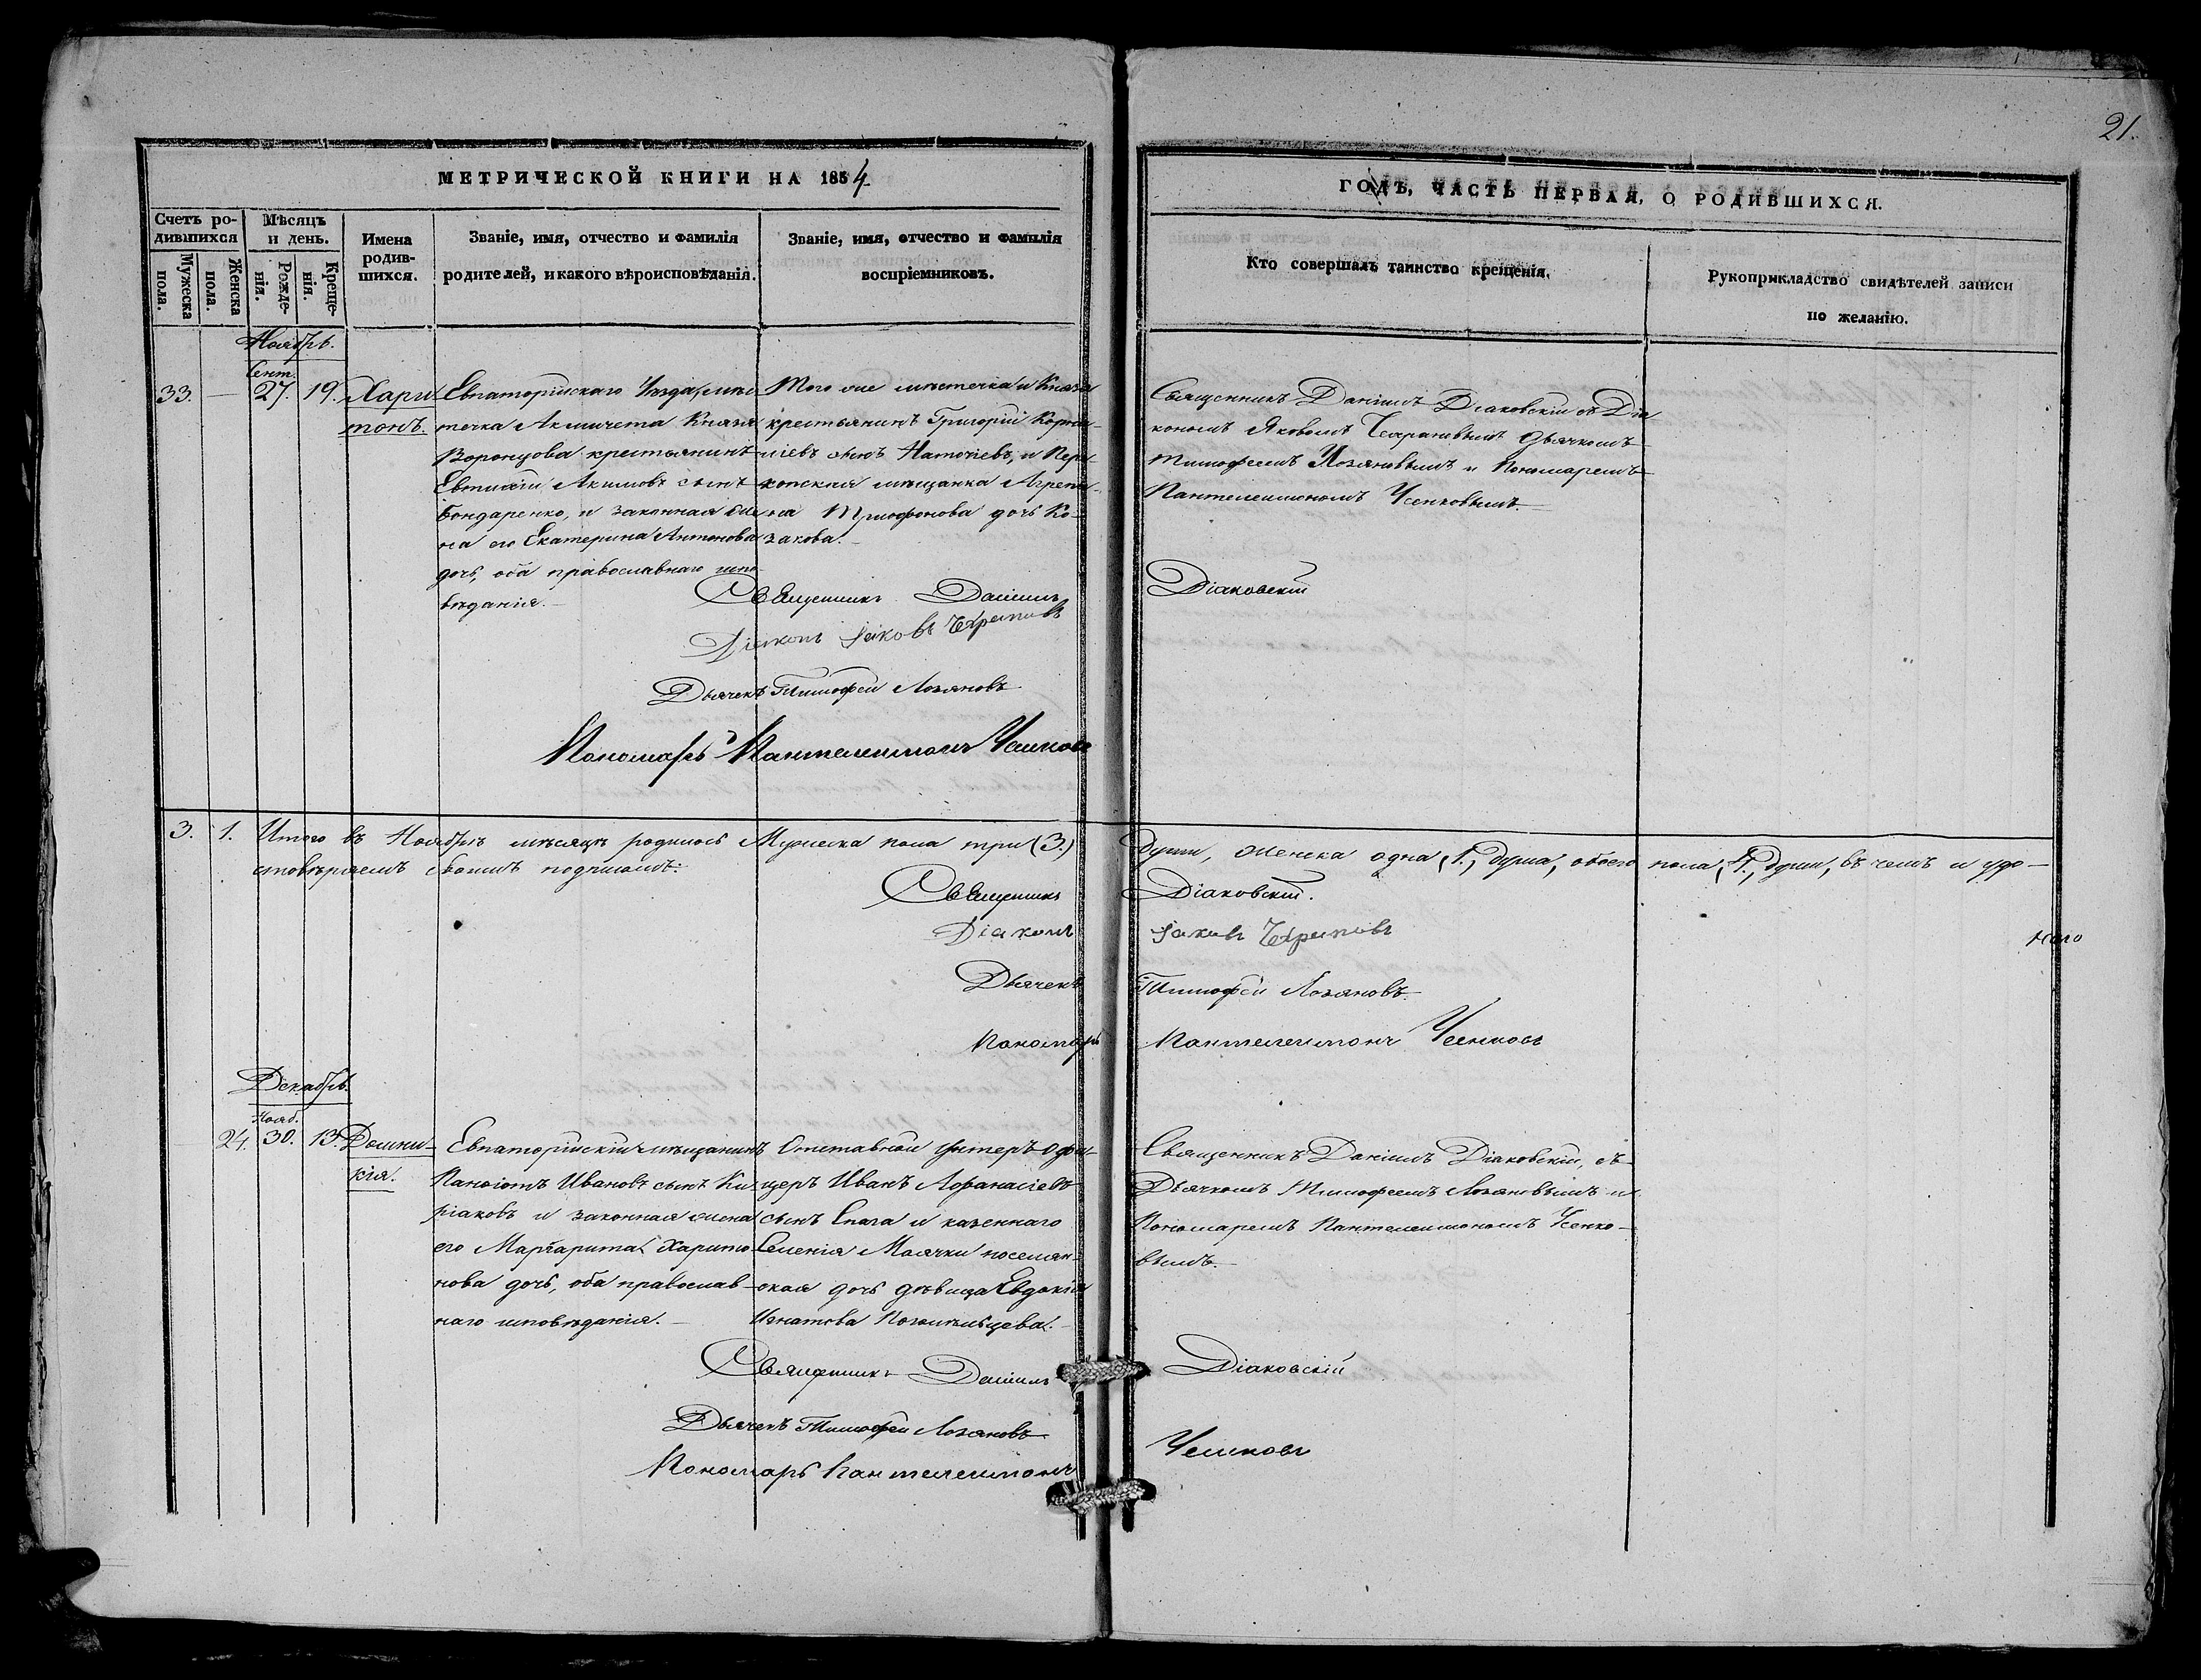 21.
МЕТРИЧЕСКОЙ КНИГИ НА 1854
ГОДЪ, ЧАСТЬ ПЕРВАЯ, О РОДИВШИХСЯ.
Счетъ ро-
дившихся
Мужеска
пола.
Женска
пола.
Мѣсяцъ
и день.
Рожде-
нія.
Креще-
нія.
Имена
родив-
шихся.
Званіе, имя, отчество и фамилія
родителей, и какого вѣроисповѣданія.
Званіе, имя, отчество и фамилія
воспріемниковъ.
Кто совершалъ таинство крещенія.
Рукоприкладство свидѣтелей записи
по желанію.
Ноябрь.
Сент.
33. — 27. 19.
Хари
тонъ.
Евпаторійскаго Уѣзда, мѣс
течка Акмичета Князя
Воронцова крестьянинъ
Евтихій Акимовъ сынъ
Бондаренко, и законная же
на его Екатерина Антонова
дочь, оба православнаго испо-
вѣданія.—
Того же мѣстечка и Князя
крестьянинъ Григорій Корни-
ліевъ сынъ, и Пере-
копская мѣщанка Агрепи-
на Трифонова дочь Ко-
закова.—
Священникъ Даніилъ Діаковскій съ Діа
кономъ Яковомъ дьячкомъ
Тимофеемъ Лозановымъ и Пономаремъ
Пантелеимономъ Усенковымъ.—
Священникъ Даніилъ Діаковскій
Діаконъ Іаковъ
Дьячекъ Тимофей Лозановъ
Пономарь Пантелеимонъ Усенковъ
3. 1. Итого въ Ноябрѣ мѣсяцѣ родилось Мужеска пола три (3.) души, женска одна (1.) душа, обоего пола (4.) души, въ чемъ и удо—
стовѣряемъ своимъ подписомъ:
Священникъ Діаковскій.
Діаконъ Іаковъ
Дьячекъ Тимофей Лозановъ
Пономарь Пантелеимонъ Усенковъ
Декабрь.
Нояб.
24. 30. 13.
Домни-
кія.
Евпаторійскій мѣщанинъ
Панаіотъ Ивановъ сынъ Ки-
ріаковъ и законная жена
его Маргарита Харито
нова дочь, оба православ-
наго исповѣданія.—
Отставной Унтеръ-офи-
церъ Иванъ Афанасіевъ
сынъ Спага и казеннаго
Селенія Маячки поселян-
ская дочь дѣвица Евдокія
Игнатова.—
Священникъ Даніилъ Діаковскій, съ
Дьячкомъ Тимофеемъ Лозановымъ и
Пономаремъ Пантелеимономъ Усенко-
вымъ.—
Священникъ Даніилъ Діаковскій
Дьячекъ Тимофей Лозановъ
Пономарь Пантелеимонъ Усенковъ